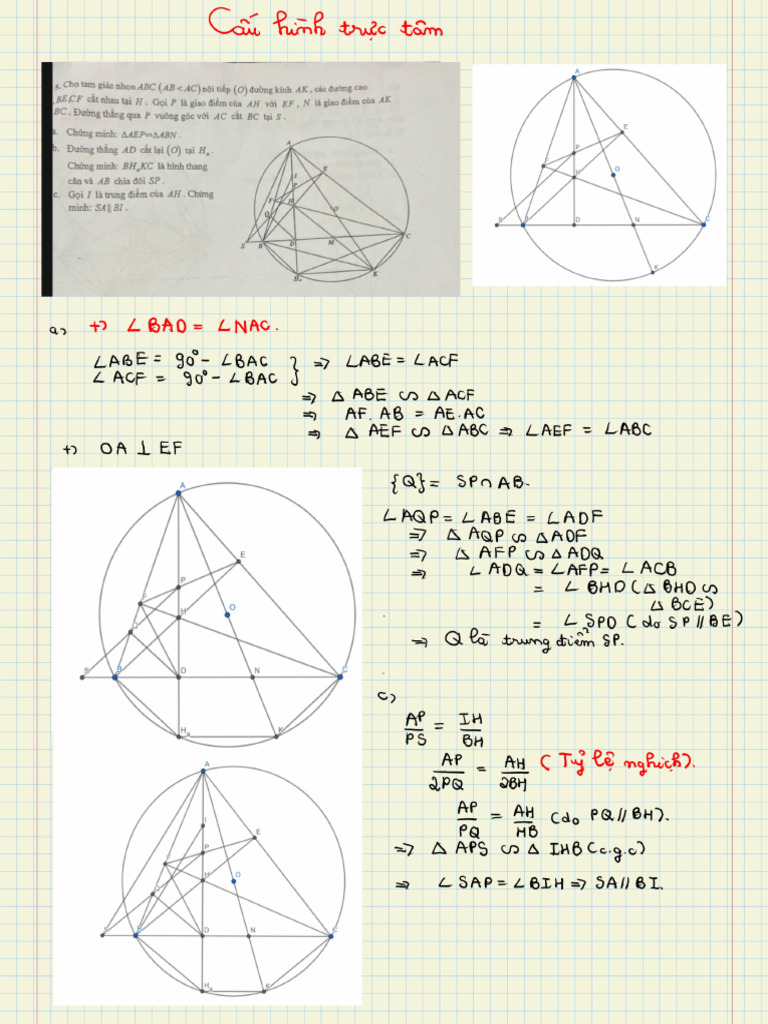 Cấu hình trực tâm
5. Cho tam giác nhọn ABC (AB < AC) nội tiếp (O) đường kính AK, các đường cao
, BE, CF cắt nhau tại H. Gọi P là giao điểm của AH với EF, N là giao điểm của AK
BC. Đường thẳng qua P vuông góc với AC cắt BC tại S.
a. Chứng minh: ΔAEP∽ΔABN.
b. Đường thẳng AD cắt lại (O) tại Hₐ.
Chứng minh: BHₐKC là hình thang
cân và AB chia đôi SP.
c. Gọi I là trung điểm của AH. Chứng
minh: SA∥BI.
a) +) ∠BAD = ∠NAC.
∠ABE = 90° - ∠BAC
∠ACF = 90° - ∠BAC } => ∠ABE = ∠ACF
=> Δ ABE ∽ Δ ACF
=> AF. AB = AE. AC
=> Δ AEF ∽ Δ ABC => ∠AEF = ∠ABC
+) OA ⊥ EF
{Q} = SP ∩ AB.
∠AQP = ∠ABE = ∠ADF
=> Δ AQP ∽ Δ ADF
=> Δ AFP ∽ Δ ADQ
=> ∠ADQ = ∠AFP = ∠ACB
= ∠BHD (Δ BHD ∽
Δ BCE)
= ∠SPD (do SP // BE)
=> Q là trung điểm SP.
c)
AP/PS = IH/BH
AP/2PQ = AH/2BH (Tỷ lệ nghịch).
AP/PQ = AH/HB (do PQ // BH).
=> Δ APS ∽ Δ IHB (c.g.c)
=> ∠SAP = ∠BIH => SA // BI.